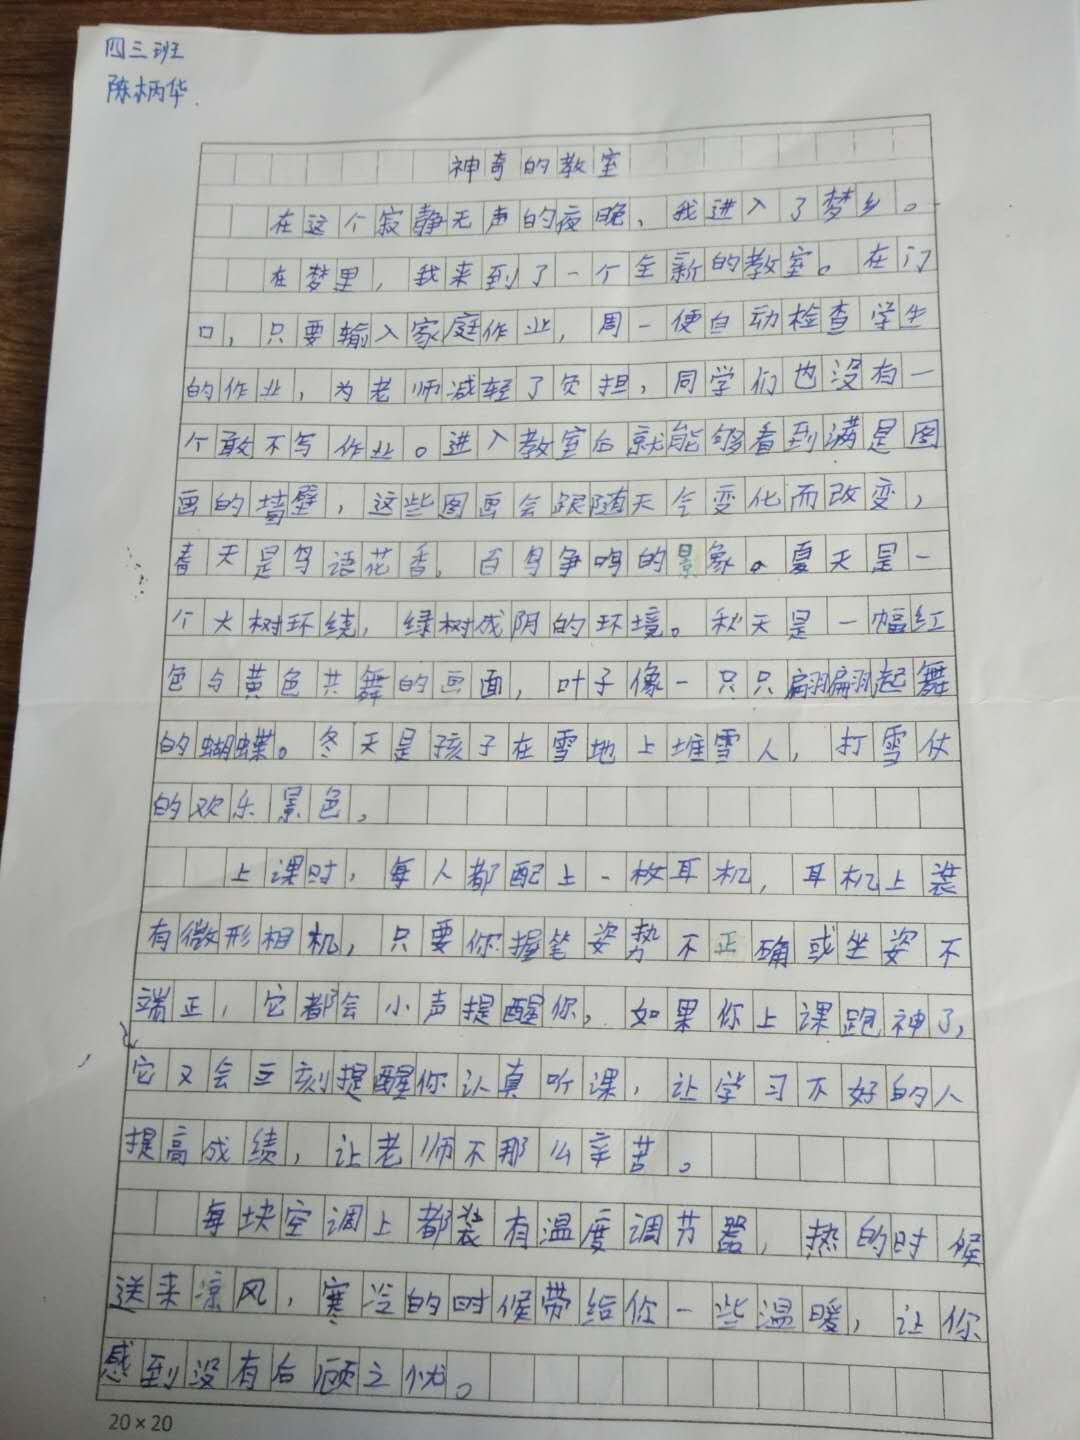 四三班
陈炳华
神奇的教室
在这个寂静无声的夜晚、我进入了梦乡。
在梦里，我来到了一个全新的教室。在门
口，只要输入家庭作业，周一便自动检查学生
的作业，为老师减轻了负担，同学们也没有一
个敢不写作业。进入教室后就能够看到满是图
画的墙壁，这些图画会跟随天气变化而改变，
春天是鸟语花香，百鸟争鸣的景象。夏天是一
个大树环绕，绿树成阴的环境。秋天是一幅红
色与黄色共舞的画面，叶子像一只只翩翩起舞
的蝴蝶。冬天是孩子在雪地上堆雪人，打雪仗
的欢乐景色。
上课时，每人都配上一枚耳机，耳机上装
有微形相机，只要你握笔姿势不正确或坐姿不
端正，它都会小声提醒你，如果你上课跑神了，
它又会立刻提醒你认真听课，让学习不好的人
提高成绩，让老师不那么辛苦。
每块空调上都装有温度调节器，热的时候
送来凉风，寒冷的时候带给你一些温暖，让你
感到没有后顾之忧。
20×20